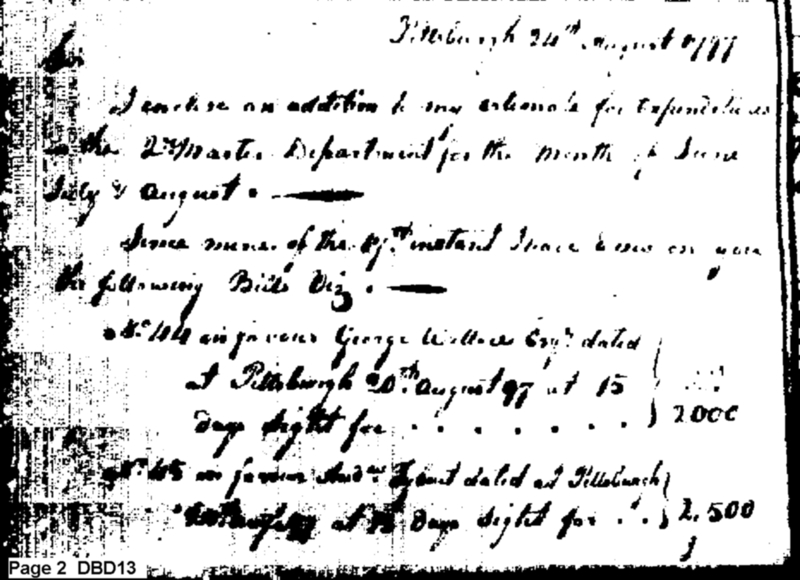 Pittsburgh 24th August 1797
Sir
I enclose an addition to my estimate for Expenditures
in the Qr Master Department for the month of June
July & August.
Since mine of the 17th instant I have drawn on you
the following Bills Viz.
No. 44 in favour George Wallace Esqr. dated
at Pittsburgh 20th August 97 at 15
days sight for . . . . . . . 2000
No. 45 in favour Andw dated at Pittsburgh
at days sight for . . . 2,500
Page 2 DBD13